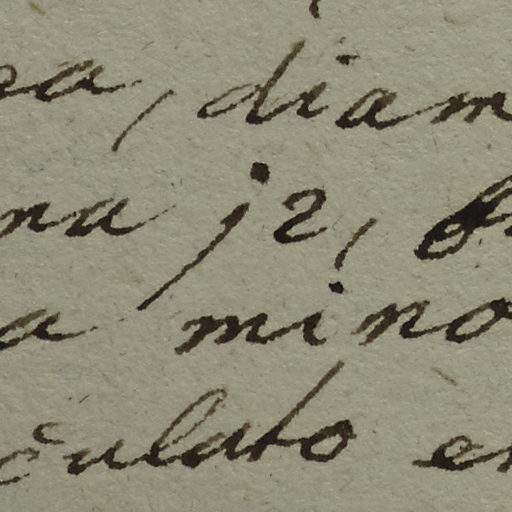 a, diam
na j2,
a mino
culato e